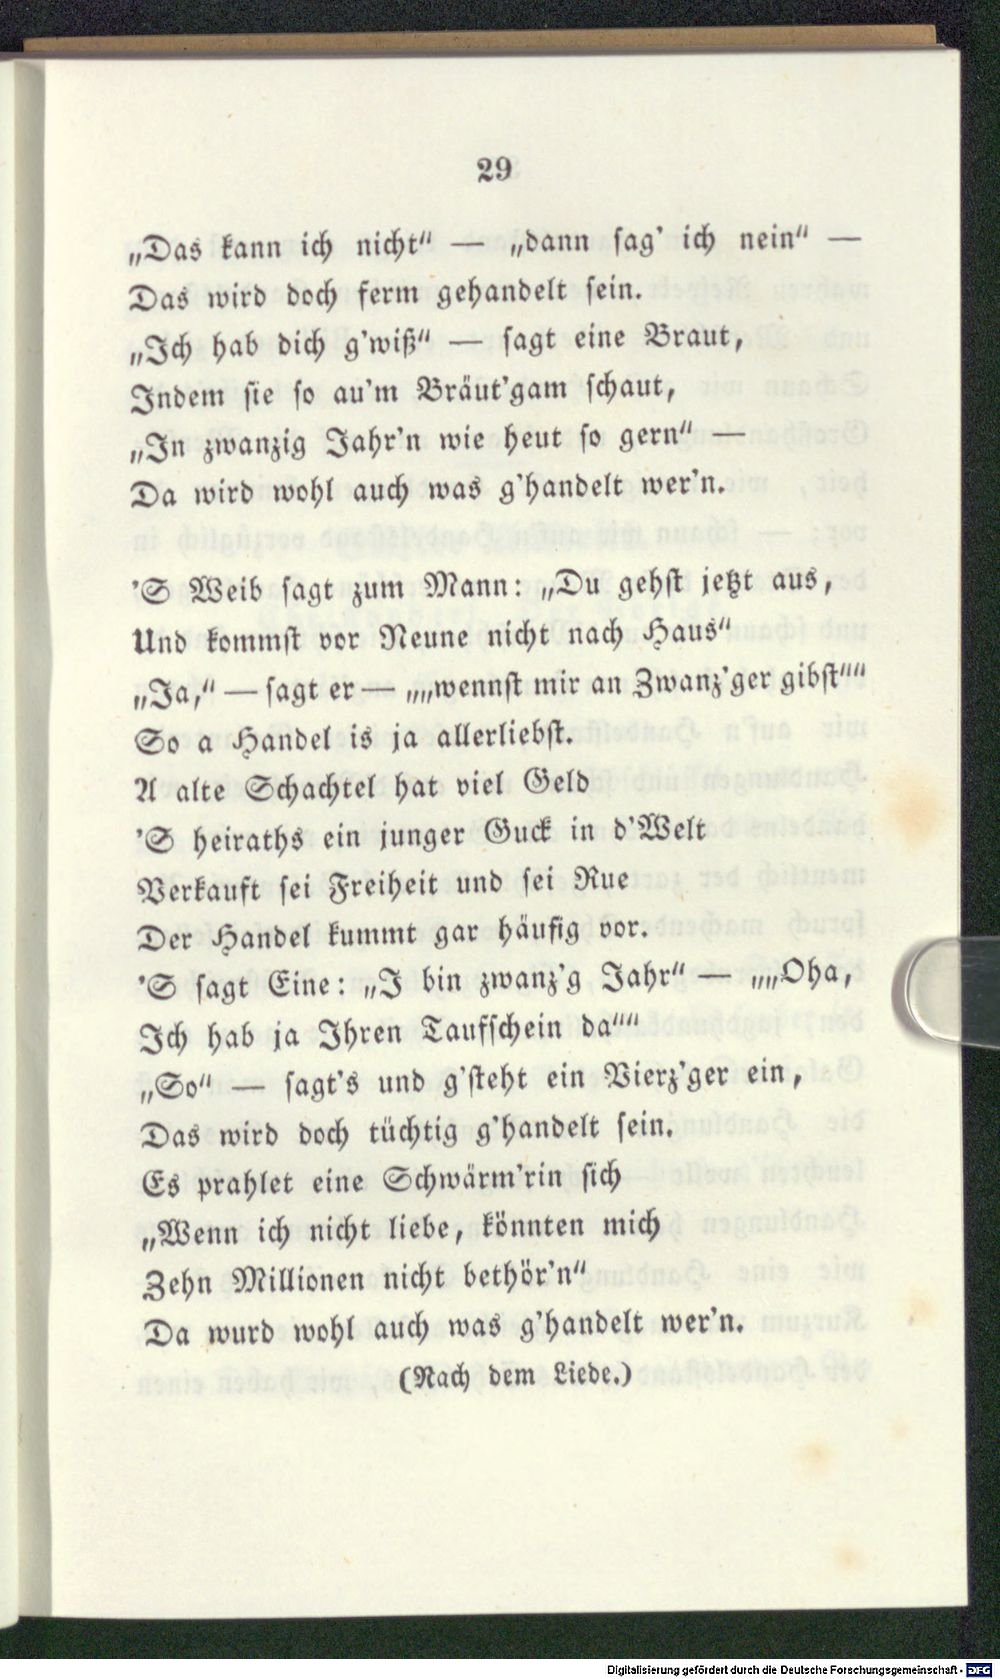 29
„Das kann ich nicht“ — „dann sag’ ich nein“ —
Das wird doch ferm gehandelt sein.
„Ich hab dich g’wiß“ — sagt eine Braut,
Indem sie so au’m Bräut’gam schaut,
„In zwanzig Jahr’n wie heut so gern“ —
Da wird wohl auch was g’handelt wer’n.
’S Weib sagt zum Mann: „Du gehst jetzt aus,
Und kommst vor Neune nicht nach Haus“
„Ja,“ — sagt er — „„wennst mir an Zwanz’ger gibst““
So a Handel is ja allerliebst.
A alte Schachtel hat viel Geld
’S heiraths ein junger Guck in d’Welt
Verkauft sei Freiheit und sei Rue
Der Handel kummt gar häufig vor.
’S sagt Eine: „I bin zwanz’g Jahr“ — „„Oha,
Ich hab ja Ihren Taufschein da““
„So“ — sagt’s und g’steht ein Vierz’ger ein,
Das wird doch tüchtig g’handelt sein.
Es prahlet eine Schwärm’rin sich
„Wenn ich nicht liebe, könnten mich
Zehn Millionen nicht bethör’n“
Da wurd wohl auch was g’handelt wer’n.
(Nach dem Liede.)
Digitalisierung gefördert durch die Deutsche Forschungsgemeinschaft - DFG